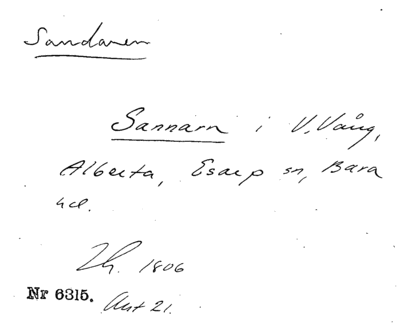 Sandaren
Sannarn i V. Vång,
Alberta, Esarp sn, Bara
hd.
Lh. 1806
Nr 6315. Akt 21.